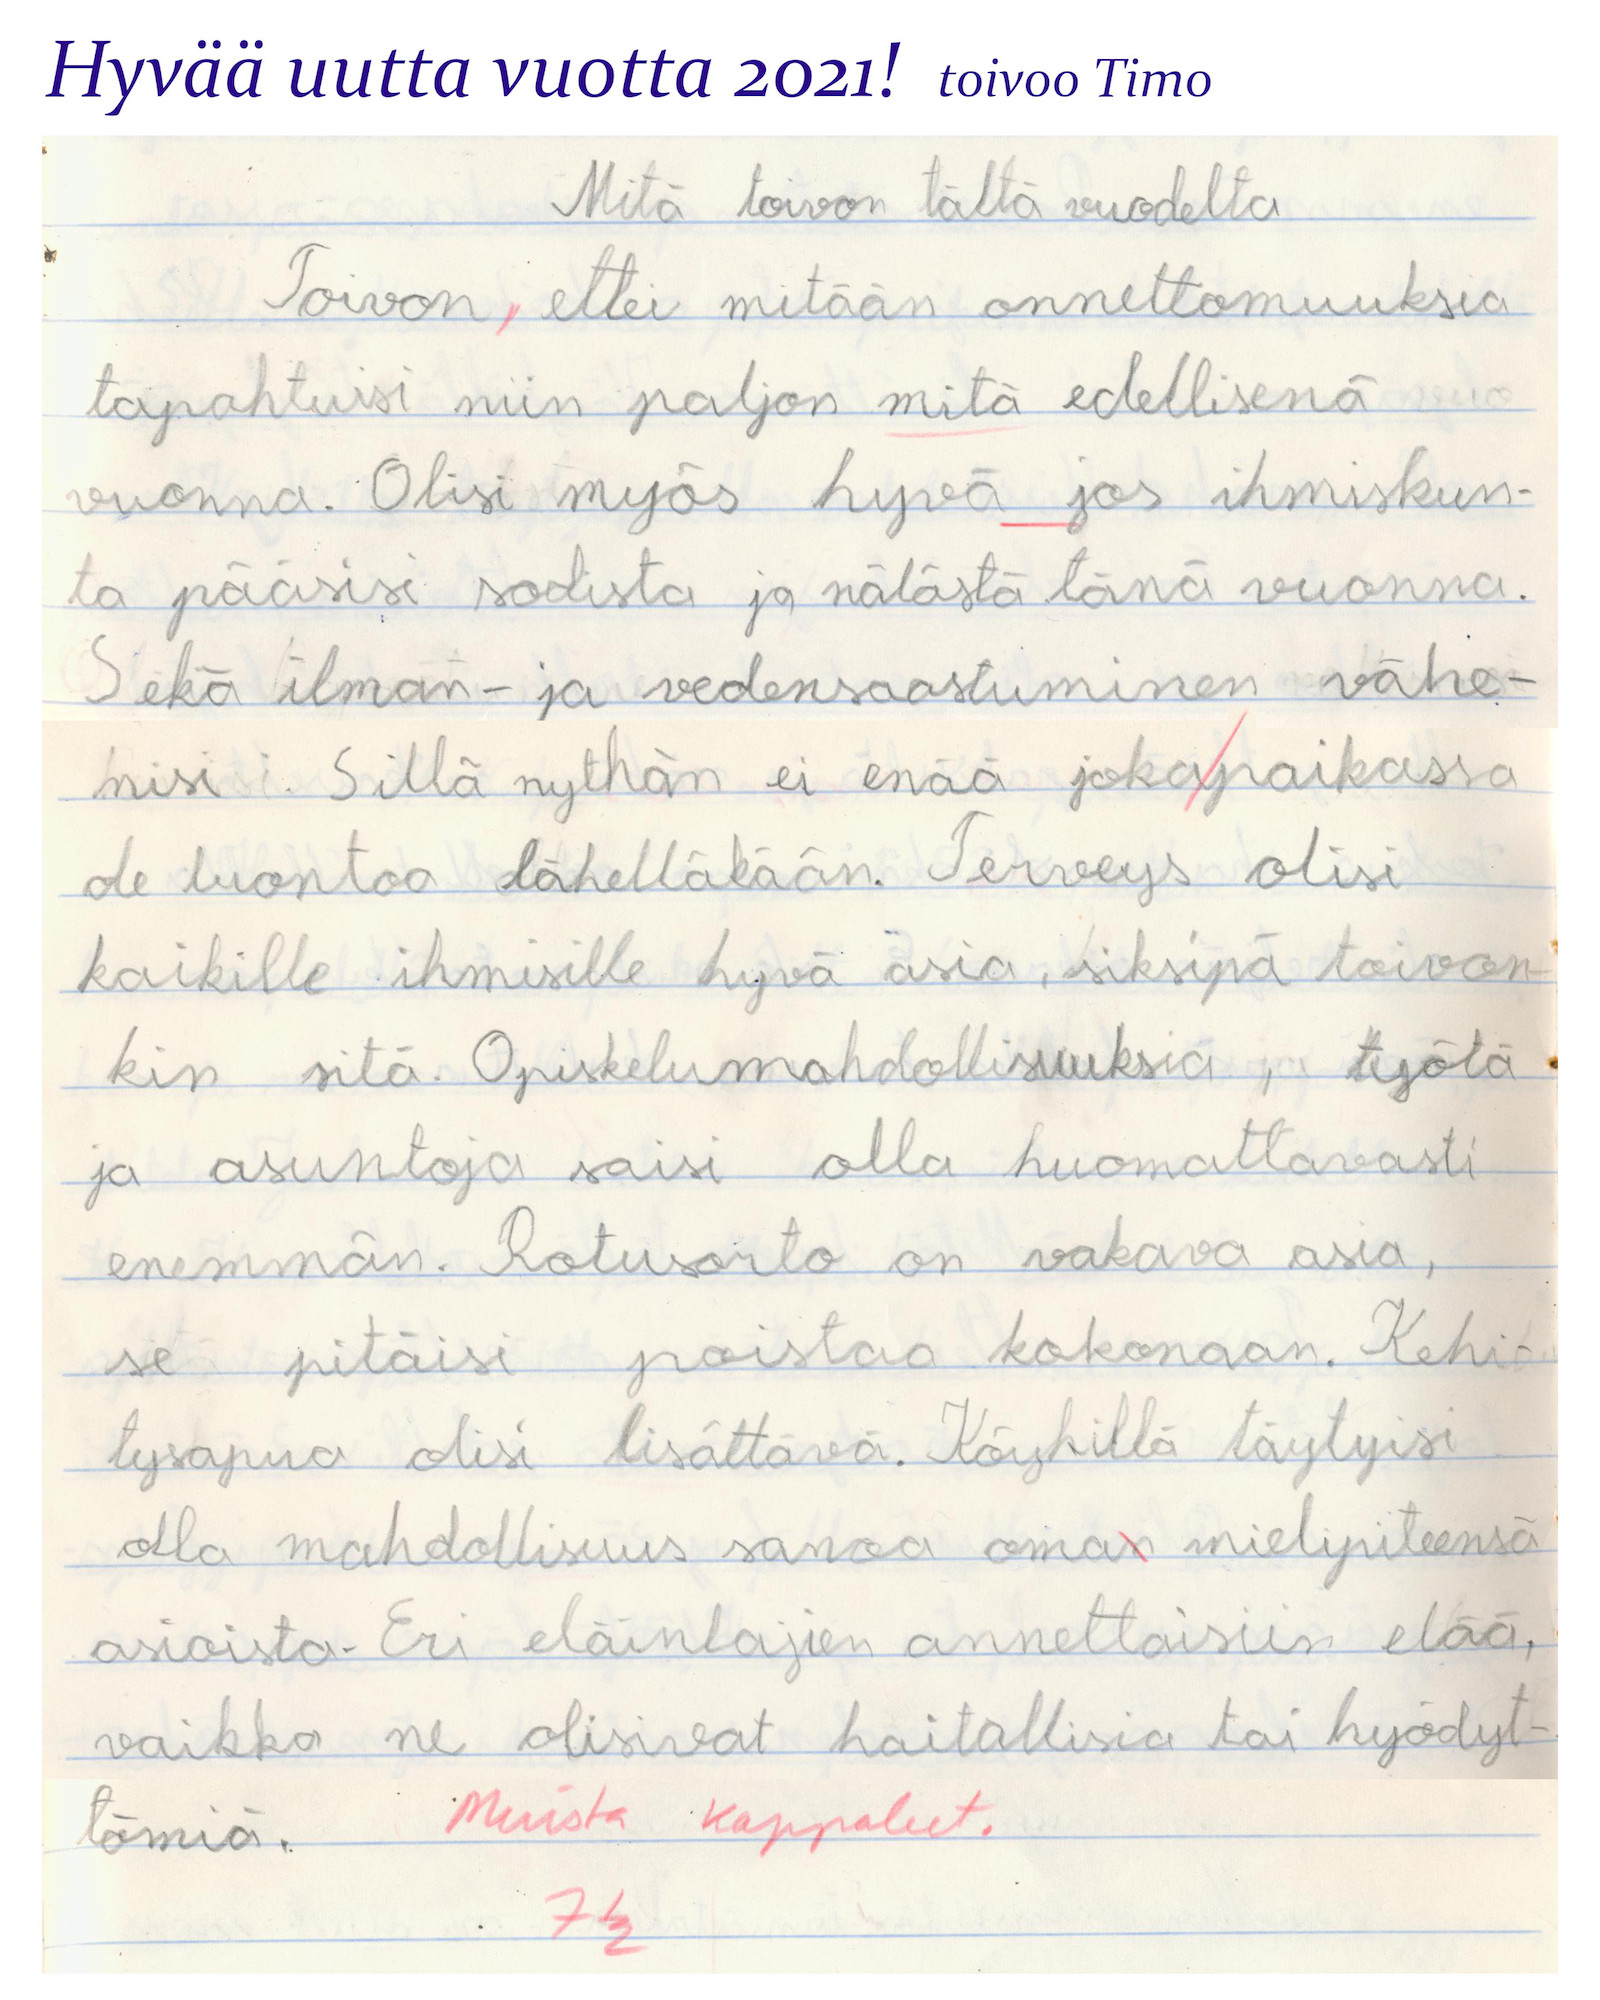 Hyvää uutta vuotta 2021! toivoo Timo
Mitä toivon tältä vuodelta
Toivon, ettei mitään onnettomuuksia
tapahtuisi niin paljon mitä edellisenä
vuonna. Olisi myös hyvä jos ihmiskun-
ta pääsisi sodista ja nälästä tänä vuonna.
Sekä ilman- ja vedensaastuminen vähe-
nisi. Sillä nythän ei enää joka/paikassa
de luontoa lähelläkään. Terveys olisi
kaikille ihmisille hyvä asia, siksipä toivon-
kin sitä. Opiskelumahdollisuuksia, työtä
ja asuntoja saisi olla huomattavasti
enemmän. Rotusorto on vakava asia,
se pitäisi poistaa kokonaan. Kehi-
tysapua olisi lisättävä. Köyhillä täytyisi
olla mahdollisuus sanoa oman mielipiteensä
asioista. Eri eläinlajien annettaisiin elää,
vaikka ne olisivat haitallisia tai hyödyt-
tömiä. Muista kappaleet.
7½